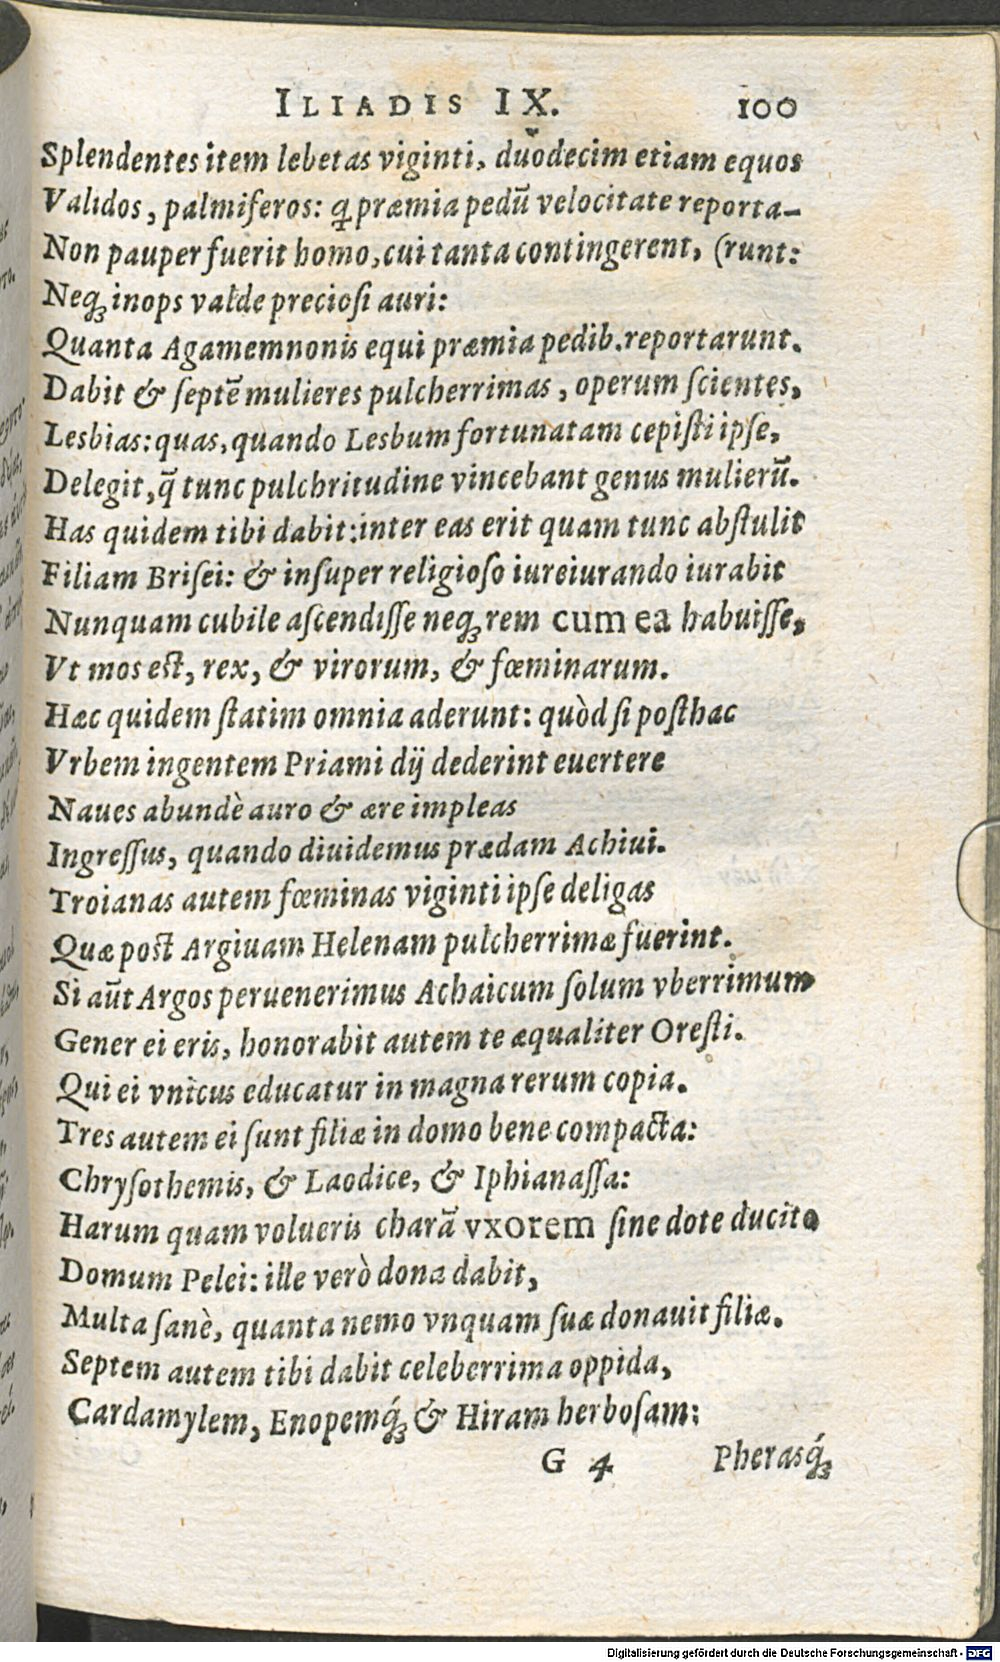 ILIADIS IX. 100
Splendentes item lebetas viginti, duodecim etiam equos
Validos, palmiferos: ꝗ præmia pedũ velocitate reporta-
Non pauper fuerit homo, cui tanta contingerent, (runt:
Neqꝫ inops valde preciosi auri:
Quanta Agamemnonis equi præmia pedib. reportarunt.
Dabit & septẽ mulieres pulcherrimas, operum scientes,
Lesbias: quas, quando Lesbum fortunatam cepisti ipse,
Delegit, q̃ tunc pulchritudine vincebant genus mulierũ.
Has quidem tibi dabit: inter eas erit quam tunc abstulit
Filiam Brisei: & insuper religioso iureiurando iurabit
Nunquam cubile ascendisse neqꝫ rem cum ea habuisse,
Vt mos est, rex, & virorum, & fœminarum.
Hæc quidem statim omnia aderunt: quòd si posthac
Vrbem ingentem Priami dij dederint euertere
Naues abundè auro & ære impleas
Ingressus, quando diuidemus prædam Achiui.
Troianas autem fœminas viginti ipse deligas
Quæ post Argiuam Helenam pulcherrimæ fuerint.
Si aũt Argos peruenerimus Achaicum solum vberrimum
Gener ei eris, honorabit autem te æqualiter Oresti.
Qui ei vnicus educatur in magna rerum copia.
Tres autem ei sunt filiæ in domo bene compacta:
Chrysothemis, & Laodice, & Iphianassa:
Harum quam volueris charã vxorem sine dote ducito
Domum Pelei: ille verò dona dabit,
Multa sanè, quanta nemo vnquam suæ donauit filiæ.
Septem autem tibi dabit celeberrima oppida,
Cardamylem, Enopemq́ꝫ & Hiram herbosam:
G 4 Pherasq́ꝫ
Digitalisierung gefördert durch die Deutsche Forschungsgemeinschaft - DFG